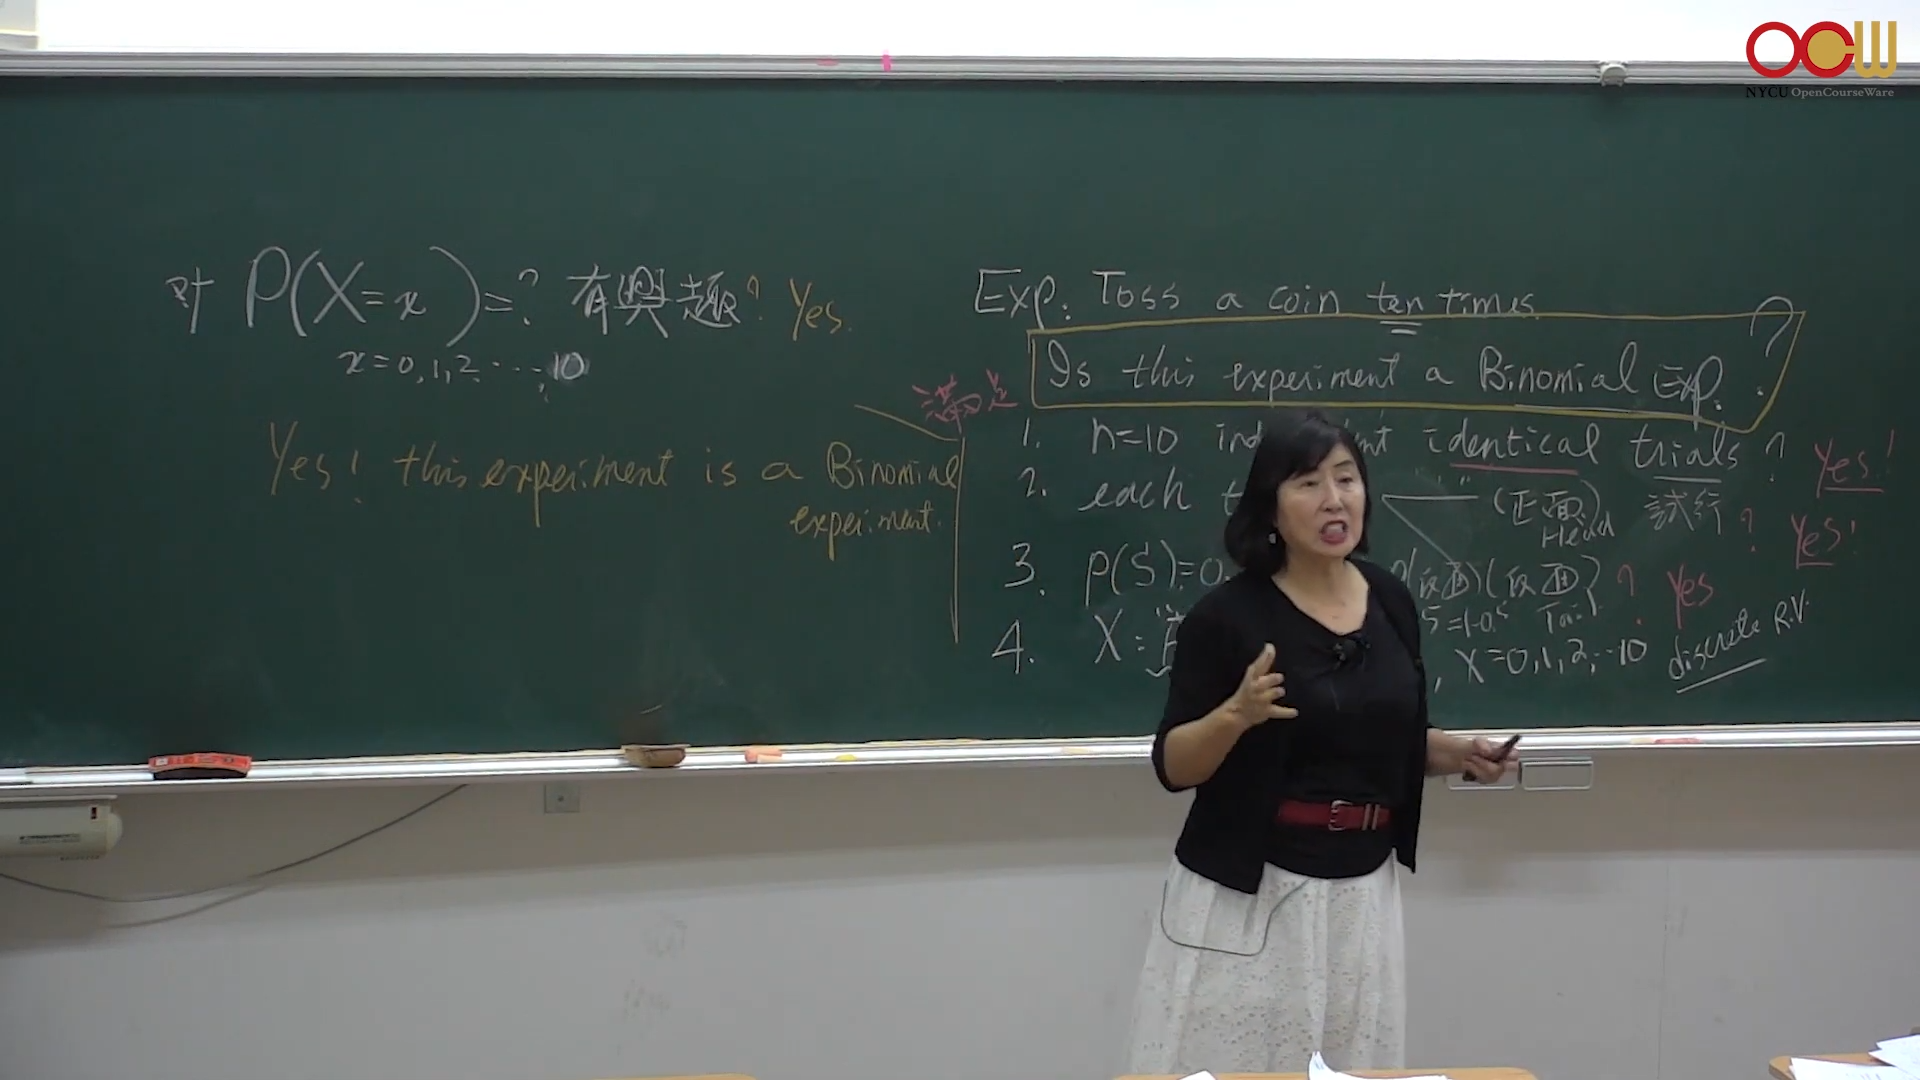 OCW
NYCU OpenCourseWare
对 P(X=x)=? 有興趣? Yes.
x=0,1,2.....,10
Yes! this experiment is a Binomial
experiment.
Exp. Toss a coin ten times
Is this experiment a Binomial Exp. ?
滿足
1. n=10 identical trials? Yes!
2. each (正面) 試行 ? Yes!
Head
3. P(S)=0. (反面) (反面) ? Yes
5=1-0.5 Tail
4. X: , X=0,1,2,...10 discrete R.V.